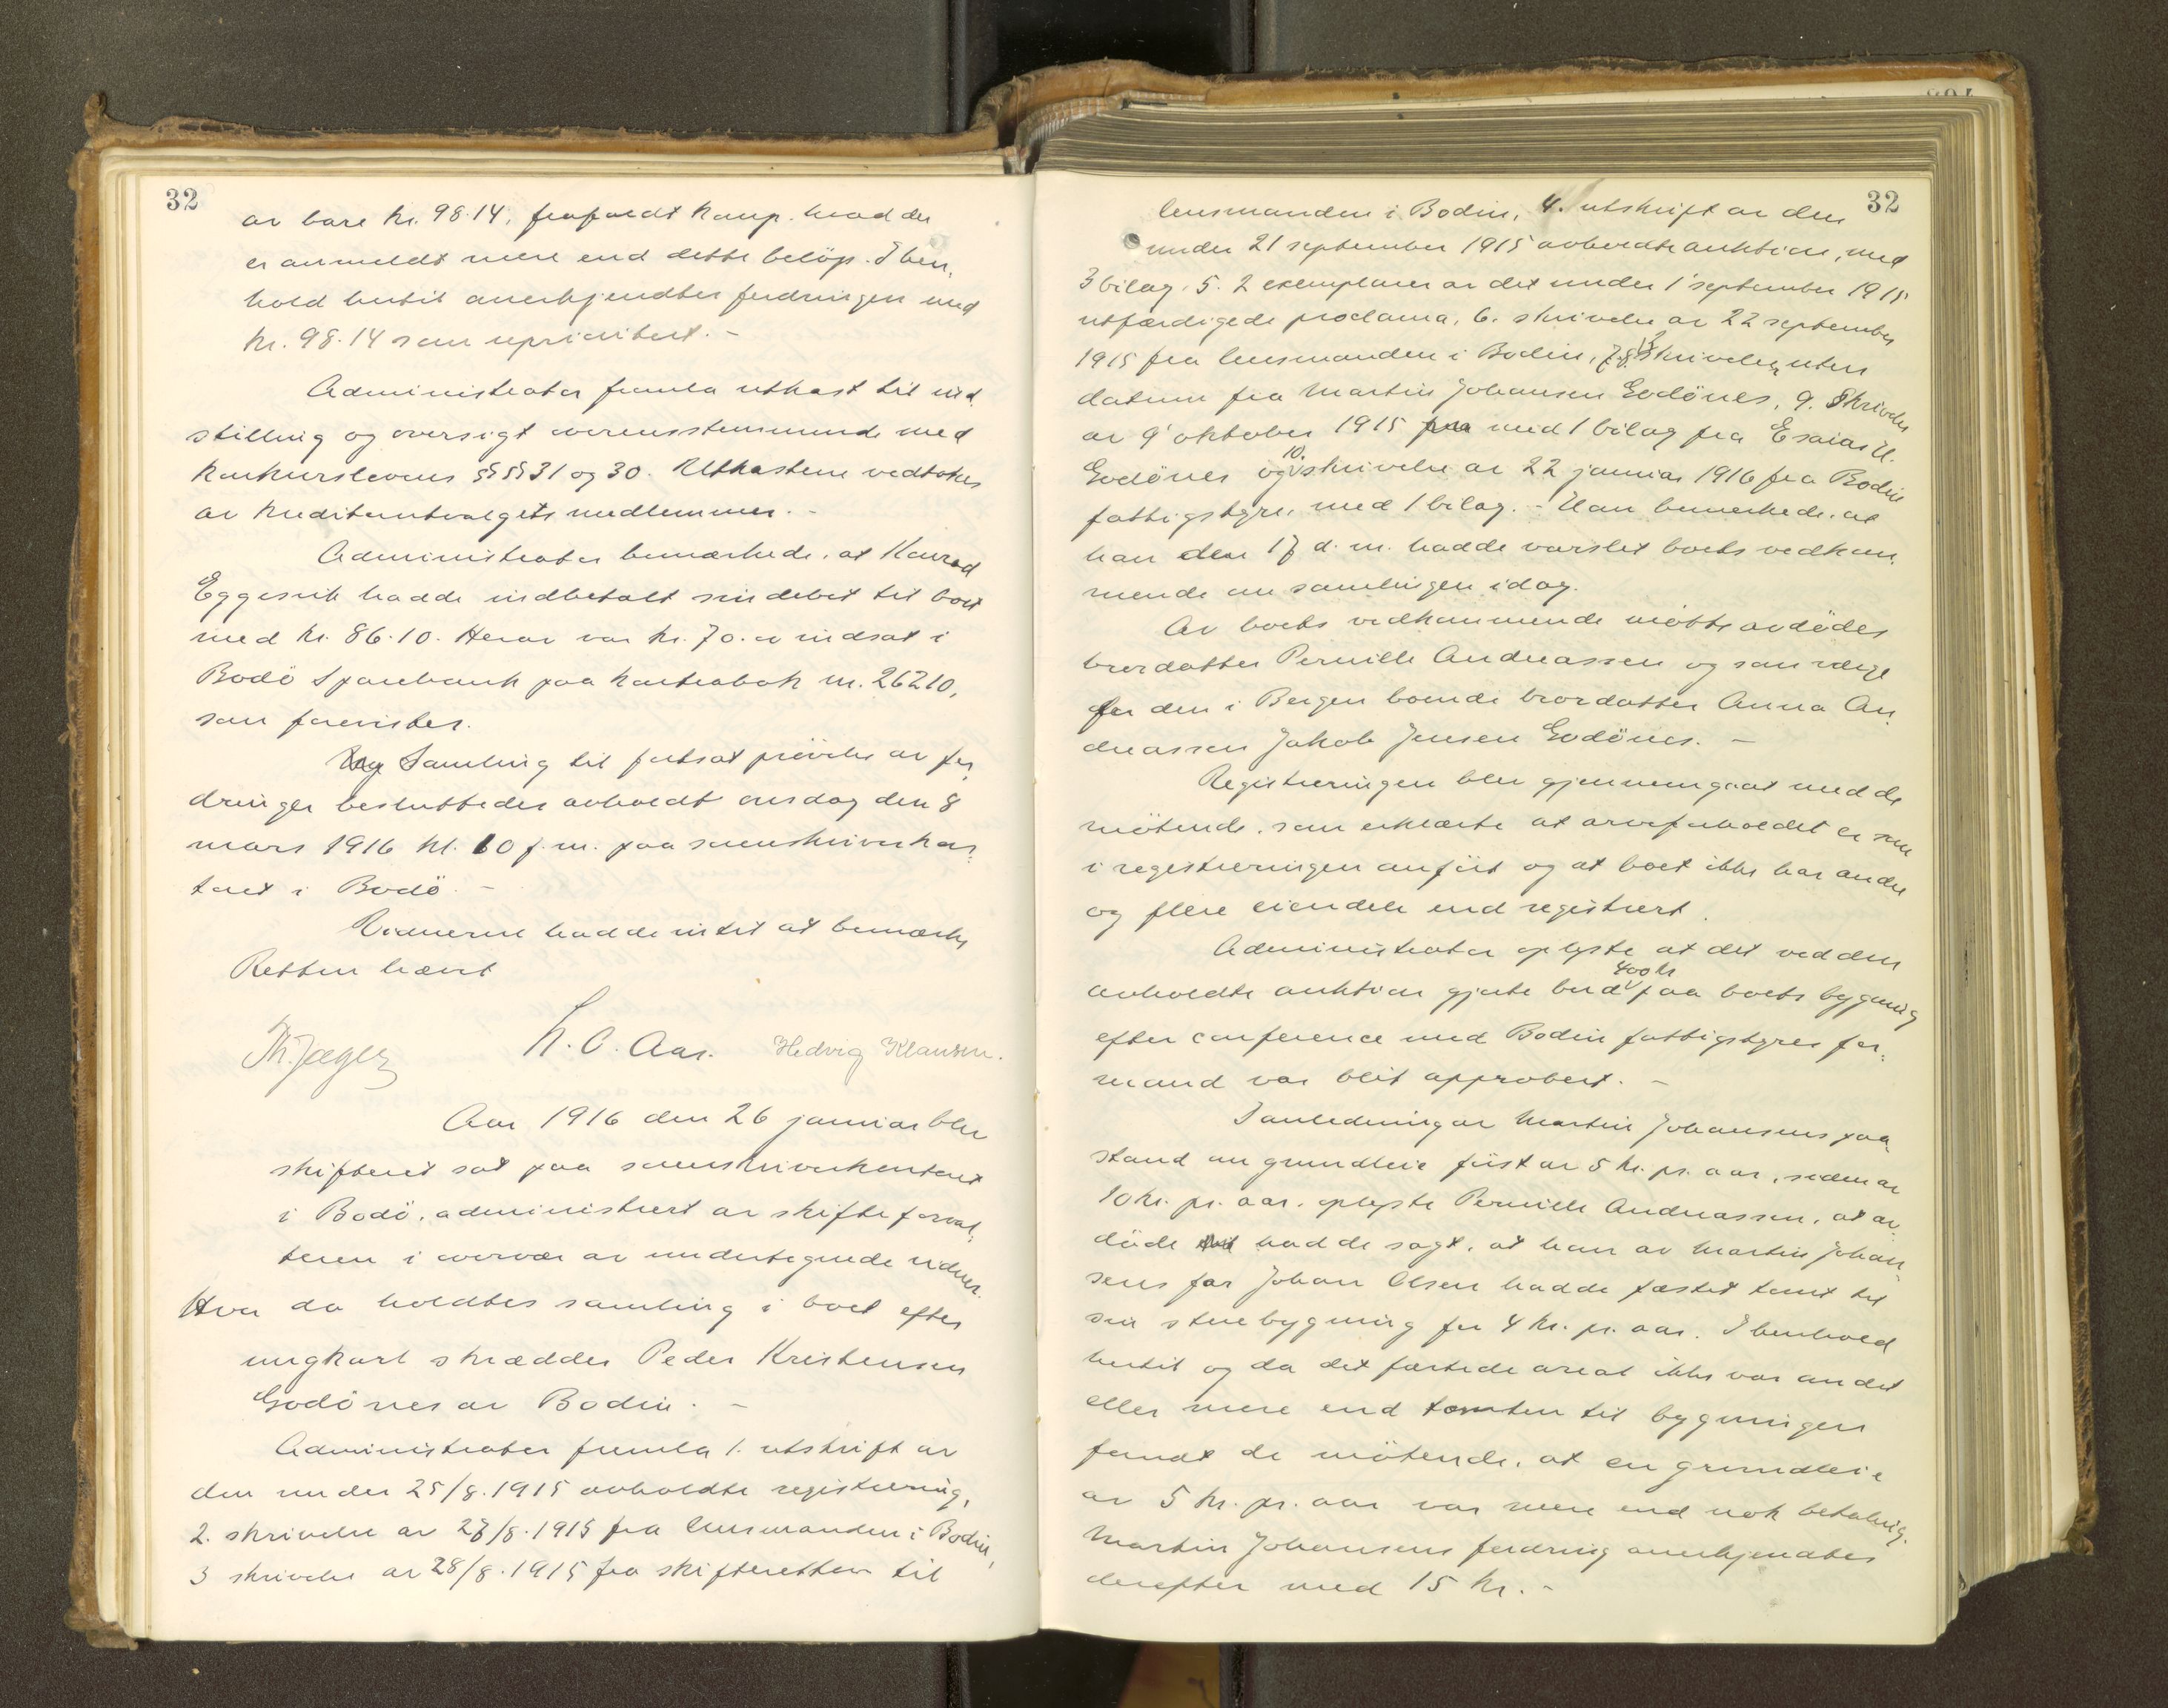 32
av bare kr. 98.14, frafaldt kaup. hvad der
er anmeldt mere end dette beløp. I hen,
hold hertil anerkjendtes fordringen med
kr. 98.14 som uprioritert. -
Administrator fremla utkast til ind,
stilling og oversigt overensstemmende med
konkurslovens §§§§ 31 og 30. Utkastene vedtokes
av kreditorutvalgets medlemmer. -
Administrator bemærkede, at Konrad
Eggesvik hadde indbetalt sin debet til boet
med kr. 86.10. Herav var kr. 70. indsat i
Bodö Sparebank paa kontrabok nr. 26210,
som forevistes.
Samling til fortsat prövelse av for,
dringer besluttedes avholdt onsdag den 8
mars 1916 kl. 10 f.m. paa sorenskriverkon,
toret i Bodö. -
Vidnerne hadde intet at bemærke
Retten hævet
Th. Jæger K. O. Aas. Hedvig Klausen.
Aar 1916 den 26 januar blev
skifteret sat paa sorenskriverkontoret
i Bodö, administrert av skifteforval,
teren i overvær av undertegnede vidner.
Hvor da holdtes samling i boet efter
ungkarl skrædder Peder Kristensen
Godönes av Bodin. -
Administrator fremla 1. utskrift av
den under 25/8.1915 avholdte registrering,
2. skrivelse av 27/8.1915 fra lensmanden i Bodin,
3 skrivelse av 28/8.1915 fra skifteretten til
32
lensmanden i Bodin, 4. utskrift av den
under 21 september 1915 avholdte auktion, med
3 bilag, 5. 2 exemplarer av det under 1 september 1915
utfærdigede proclama, 6. skrivelse av 22 september
1915 fra lensmanden i Bodin, 7. 8. skrivelser uten
datum fra Martin Johansen Godönes, 9. Skrivelse
av 9 oktober 1915 med 1 bilag fra Esaias H.
Godönes og 10. skrivelse av 22 januar 1916 fra Bodin
fattigstyre, med 1 bilag. - Han bemerkede, at
han den 17 d. m. hadde varslet boets vedkom,
mende om samlingen idag.
Av boets vedkommende mötte avdödes
brordatter Pernille Andreassen og som verge
for den i Bergen boende brordatter Anna An,
dreassen Jakob Jensen Godönes. -
Registreringen blev gjennemgaat med de
mötende, som erklærte at arveforholdet er som
i registreringen anfört og at boet ikke har andre
og flere eiendele end registrert.
Administrator oplyste at det ved den
avholdte auktion gjorte bud 400 kr paa boets bygning
efter conference med Bodin fattigstyres for,
mand var blit approbert. -
I anledning av Martin Johansens paa,
stand om grundleie först av 5 kr. pr. aar, siden av
10 kr. pr. aar, oplyste Pernille Andreassen, at av,
döde hadde sagt, at han av Martin Johan,
sens far Johan Olsen hadde fæstet tomt til
sin stuebygning for 4 kr. pr. aar. I henhold
hertil og da det fæstede areal ikke var andet
eller mere end tomten til bygningen
fandt de mötende, at en grundleie
av 5 kr. pr. aar var mere end nok betaling.
Martin Johansens fordring anerkjendtes
derefter med 15 kr. -